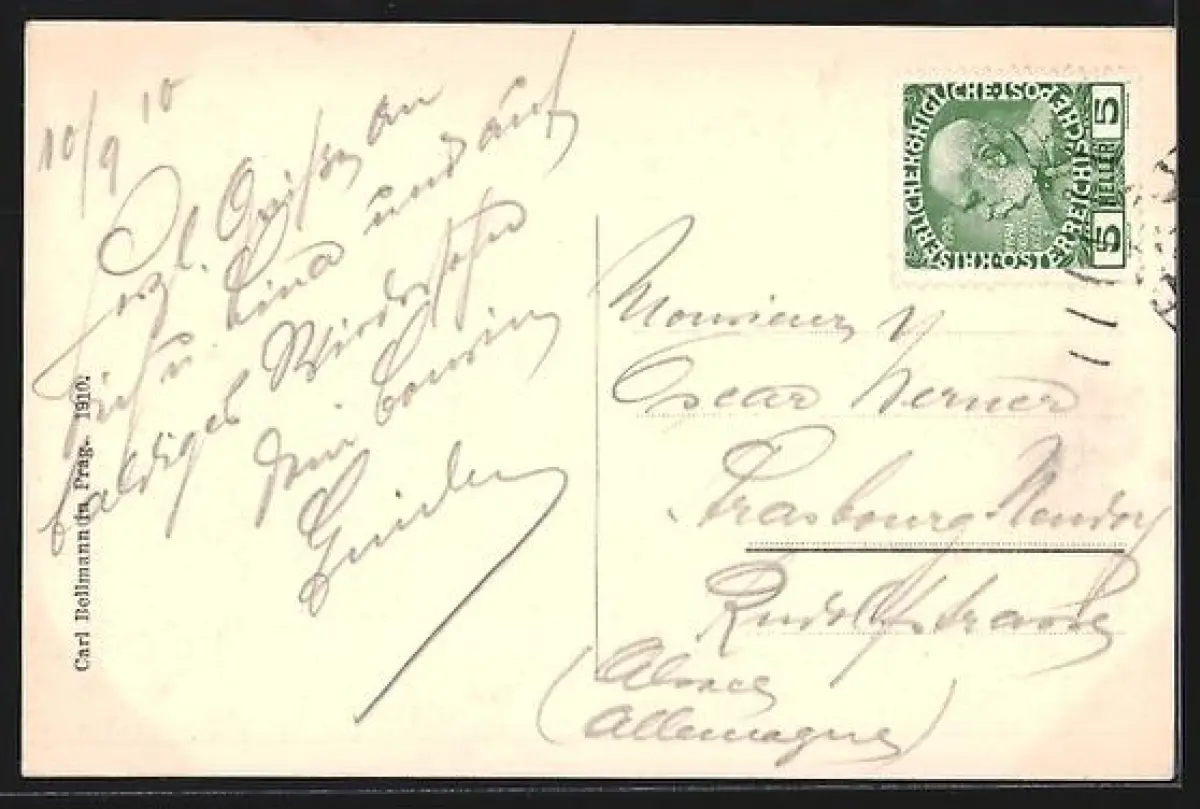 10/9 10
Hrzl. Grüsse an
Dich u. Lina und auf
baldiges Wiedersehn
Dein Cousin
Carl Bellmann in Prag. 1910.
KAISERLICHE KÖNIGLICHE ÖSTERREICHISCHE POST
5 HELLER 5
Monsieur
Oscar Kerner
Strasbourg-Neudorf
Rudolfstrasse
(Alsace
Allemagne)